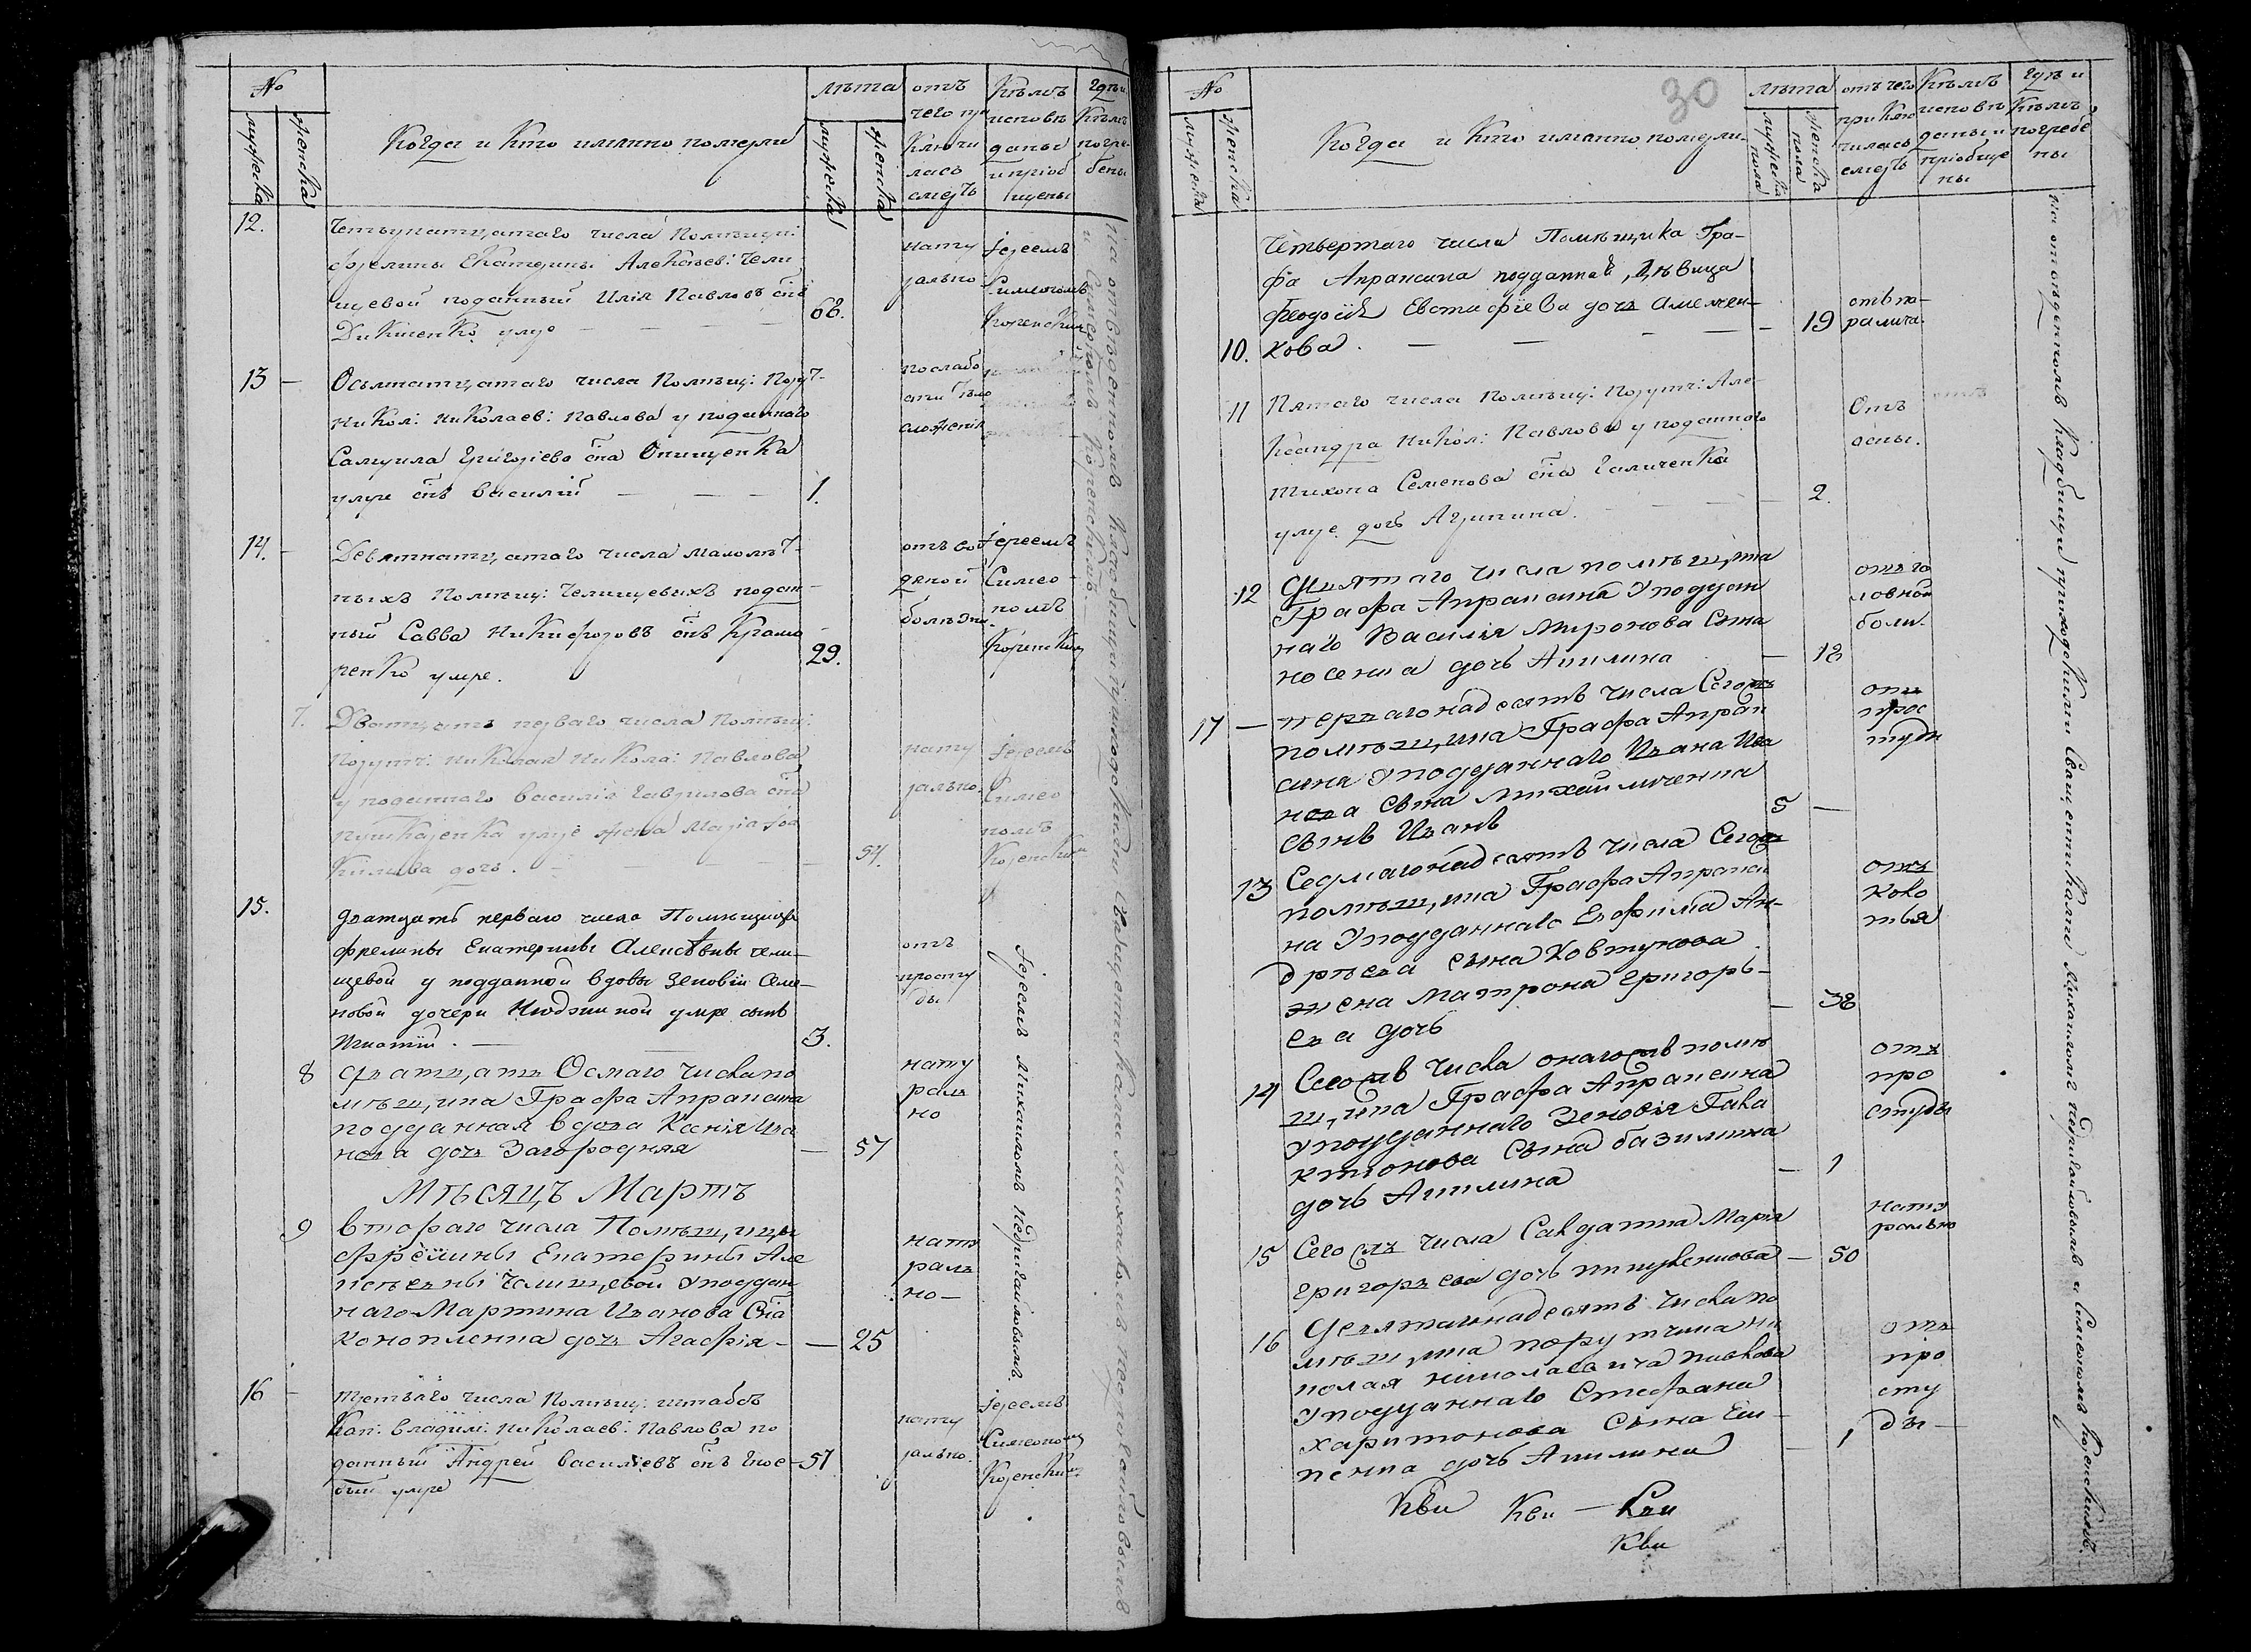 №
мужеска
женска
Когда и кто именно померли
лѣта
мужеска
женска
отъ
чего при
ключи
лась
смерть
Кѣмъ
исповѣ
даны
и приоб
щены
гдѣ и
Кѣмъ
погре
бены
12.
Четырнатцатаго числа Помѣщиц:
фрелины Екатерины Алексѣев: Чели
щевой поданный Илія Павловъ снъ
Дикиенко умре
68.
нату
рально
Іереемъ
Симеономъ
Коренскимъ
13 —
Осьмнатцатаго числа Помѣщ: Поруч-
Никол: Николаев: Павлова у поданнаго
Самуила Григоріева сна Онищенка
умре снъ Василій
1.
послабо
сти тѣло
сложенія
14. —
Девятнатцатаго числа Малолѣт-
ныхъ Помѣщ: Челищевыхъ подан-
ный Савва Никифоровъ снъ Крама
ренко умре.
29.
отъ во
дяной
болѣзни.
Іереемъ
Симео-
номъ
Коренским
7.
Дватцать перваго числа Помѣщ:
Поруч: Николая Никола: Павлова
у поданнаго Василія Гаврилова сна
Пушкаренка умре жена Марія
дочь.
54.
нату
рально.
Іереемъ
Симео
номъ
Коренским
15.
Дватцать перваго числа Помѣщицы
фрелины Екатерины Алексѣвны чели-
щевой у подданной вдовы Зеновіи Семе-
новой дочери умре сынъ
Игнатій.
3.
отъ
просту
ды
8
Дватцать Осмаго числа по
мѣщика Графа Апраксина
подданная вдова Ксенія Ива
нова дочь Загородняя
— 57
нату
раль
но
Мѣсяцъ Мартъ
9
Втораго числа Помѣщицы
фрелины Екатерины Але
ксѣевны Челищевой у поддан
наго Мартина Иванова Сна
Конопленка дочь Агафія
— 25
нату
раль
но —
16 —
Третьяго числа Помѣщ: штабсъ
Кап: Владим: Николаев: Павлова по
данный Андрей Васильевъ снъ Гнос-
бый умре
57
нату
рально.
Іереемъ
Симеоном
Коренским
Іереемъ Михаиломъ Недригайловымъ.
на отведенномъ Кладбищи приходскими Священниками Михаиломъ Недригайловымъ
и Симеономъ Коренскимъ
30
№
мужеска
женска
Когда и кто именно померли
лѣта
мужеска
пола
женска
пола
отъ чего
приклю
чилась
смерть
Кѣмъ
исповѣ
даны и
пріобще
ны
гдѣ и
Кѣмъ
погребе
ны
Четвертаго числа Помѣщика Гра-
фа Апраксина подданная, дѣвица
Феодосія Евстафіева дочь Амелен-
10. кова.
— 19
отъ па-
ралича.
11
Пятаго числа Помѣщ: Поруч: Але-
ксандра Никол: Павлова у поданнаго
Тихона Семенова сна Галиченка
умре дочь Агрипина.
— 2.
Отъ
оспы.
12
Девятаго числа помѣщика
Графа Апраксина у поддан
наго Василія Миронова Сына
Носенка дочь Акилина
— 12
отъ го
ловной
боли.
17 —
Перваго надесять числа Сегожъ
помѣщика Графа Апрак
сина у подданнаго Ивана Ива
нова сына Михайличенка
сынъ Иванъ
5 —
отъ
прос
туды
13
Седмагонадесять числа Сегожъ
помѣщика Графа Апракси
на у подданнаго Ефима Ан-
дрѣева сына Ковтунова
жена Матрона Григорь-
ева дочь
— 38
отъ
коло
тья
14
Сегожъ числа онагожъ помѣ
щика Графа Апраксина
у подданнаго Зеновія Гала
ктионова Сына базилика
дочь Акилина
— 1
отъ
про
студы
15
Сегожъ числа Салдатка Марія
Григорьева дочь
— 50
нату
рально
16
Девятагонадесять числа по
мѣщика порутчика Ни
колая Николаевича Павлова
у подданнаго Стефана
Харитонова Сына
дочь Акилина
— 1
отъ
про
сту
ды —
Кви Кви — Кви
Кви
на отведенномъ Кладбищи приходскими Священниками Михаиломъ Недригайловымъ и Симеономъ Коренскимъ.